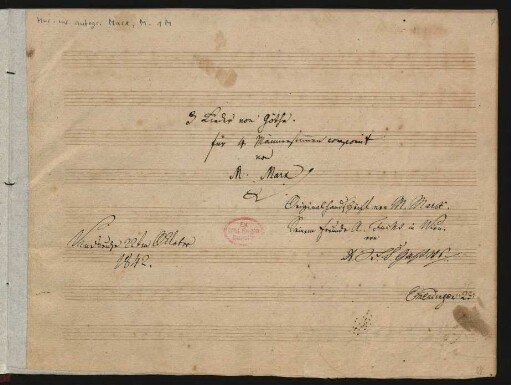 Mus. ms. autogr. Marx, M. 1 M
3 Lieder von Göthe.
für 4 Männerstimmen componirt
von
M. Marx
Originalhandschrift von M. Marx.
Seinem Freunde A. Fuchs in Wien.
von
22ten October
1842.